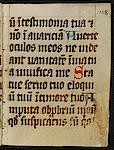 ī testimonia tua ⁊
nō ī auariciā Auerte
oculos meos ne uide
ant uanitatē ī uia tu
a uiuifica me Sta
tue seruo tuo eloqui
ū tuū ī timore tuo A
mputa obpbriū meū
qd suspicatus sū qa